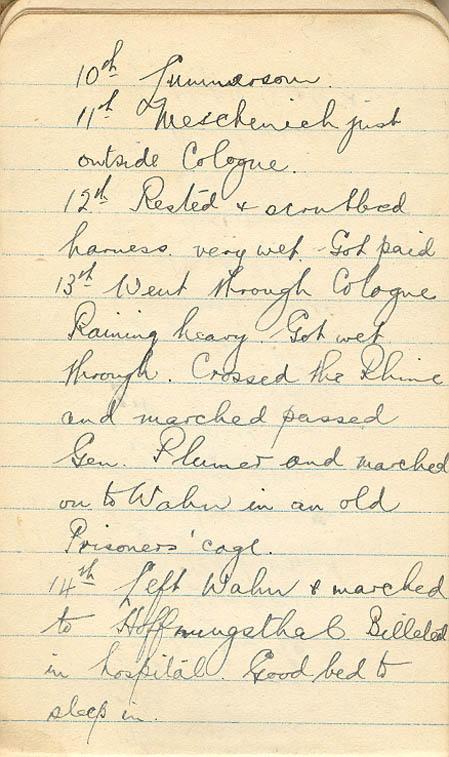 10th Gummersom.
11th Meschenich just
outside Cologne.
12th Rested & scrubbed
harness. very wet. Got paid
13th Went through Cologne
Raining heavy. Got wet
through. Crossed the Rhine
and marched passed
Gen. Plumer and marched
on to Wahn in an old
Prisoners' cage.
14th Left Wahn & marched
to Hoffnungsthal Billeted
in hospital. Good bed to
sleep in.